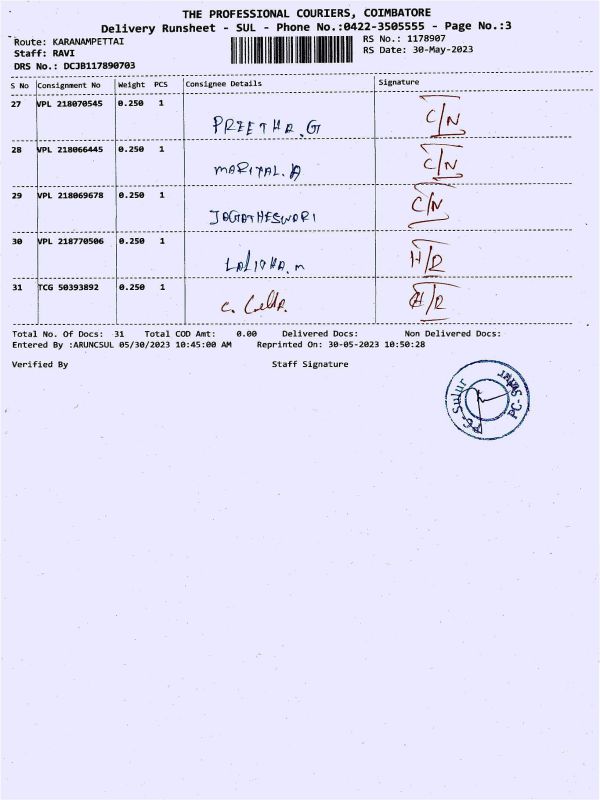 THE PROFESSIONAL COURIERS, COIMBATORE
Delivery Runsheet - SUL - Phone No.:0422-3505555 - Page No.:3
Route: KARANAMPETTAI RS No.: 1178907
Staff: RAVI RS Date: 30-May-2023
DRS No.: DCJB117890703
S No Consignment No Weight PCS Consignee Details Signature
27 VPL 218070545 0.250 1 PREETHA.G C/N
28 VPL 218066445 0.250 1 C/N
29 VPL 218069678 0.250 1 C/N
30 VPL 218770506 0.250 1 H/R
31 TCG 50393892 0.250 1 H/R
Total No. Of Docs: 31 Total COD Amt: 0.00 Delivered Docs: Non Delivered Docs:
Entered By :ARUNCSUL 05/30/2023 10:45:00 AM Reprinted On: 30-05-2023 10:50:28
Verified By Staff Signature
PC-Sulur